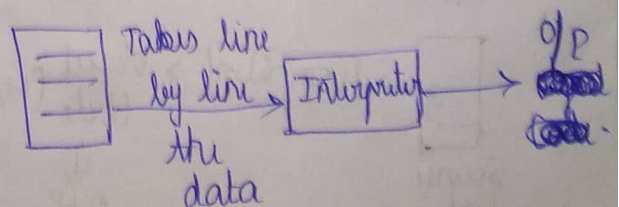 Takes line
by line
the
data
Interpreter
O/P